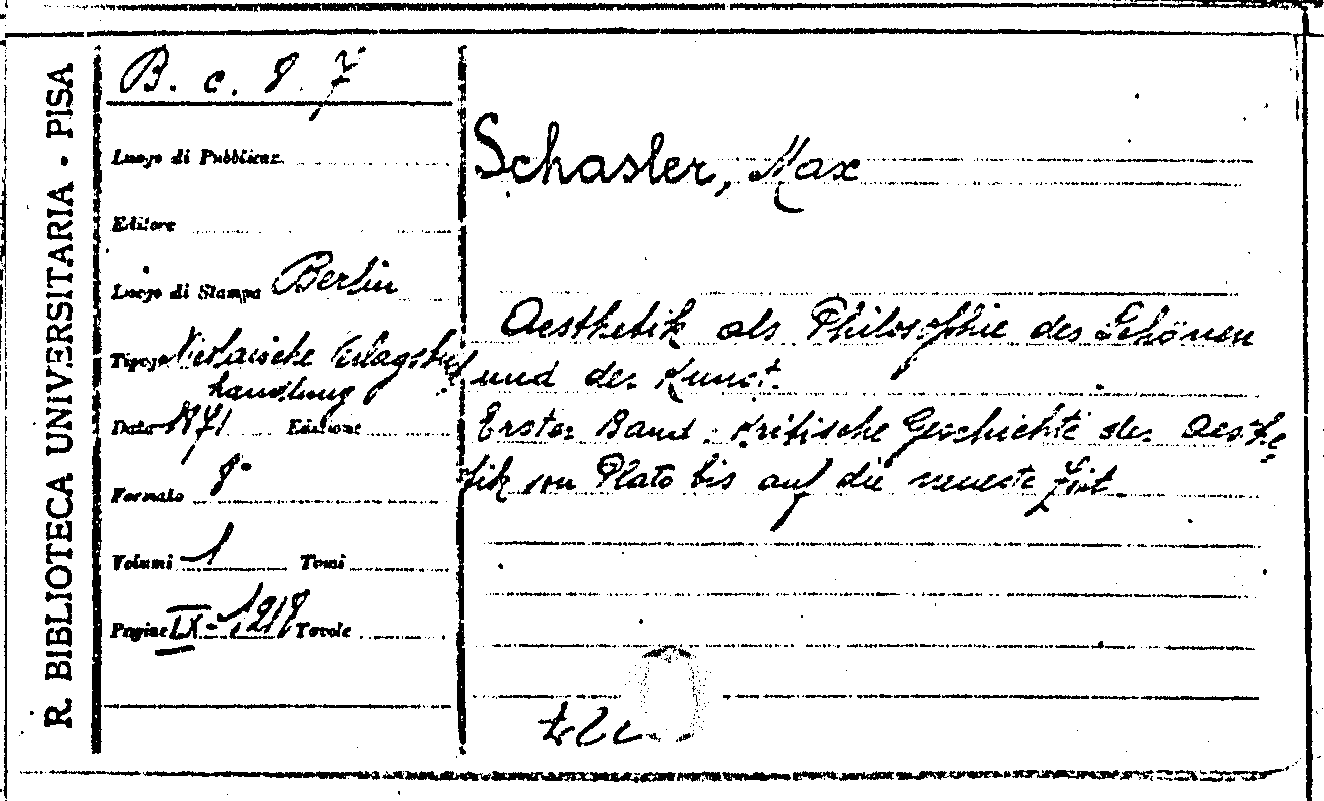 R. BIBLIOTECA UNIVERSITARIA - PISA
B. c. 8. 7
Luogo di Pubblicaz.
Editore
Luogo di Stampa Berlin
Tipogr. Nicolaische Verlagsbuch
handlung
Data 1871 Edizione
Formato 8°
Volumi 1 Tomi
Pagine IX-1218 Tavole
Schasler, Max
Aesthetik als Philosophie des Schönen
und der Kunst.
Erster Band: Kritische Geschichte der Aesthe
tik von Plato bis auf die neueste Zeit